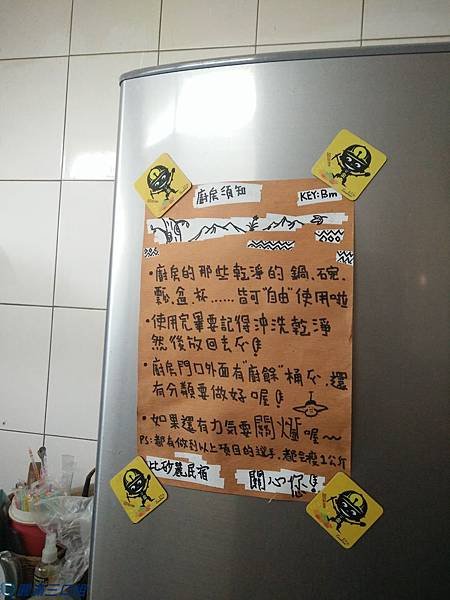 廚房須知
KEY:Bm
•廚房的那些乾淨的鍋、碗、
瓢、盆、杯......皆可"自由"使用啦
•使用完畢要記得沖洗乾淨
然後放回去ㄉ!
•廚房門口外面有"廚餘"桶ㄉ、還
有分類要做好喔!
•如果還有力氣要關燈喔~
PS:都有做到以上項目的選手,都會瘦1公斤
比砂麓民宿
關心您!